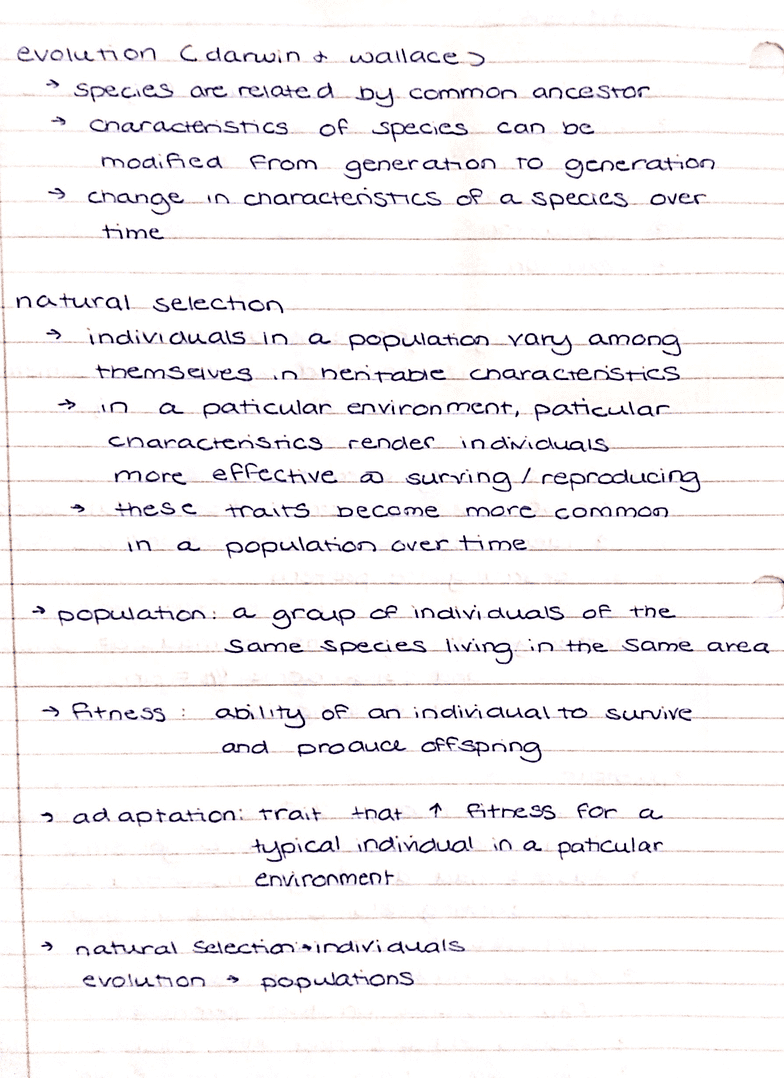 evolution (darwin + wallace)
→ species are related by common ancestor
→ characteristics of species can be
modified from generation to generation
→ change in characteristics of a species over
time
natural selection
→ individuals in a population vary among
themselves in heritable characteristics
→ in a paticular environment, paticular
characteristics render individuals
more effective @ surving / reproducing
→ these traits become more common
in a population over time
→ population: a group of individuals of the
same species living in the same area
→ fitness: ability of an individual to survive
and produce offspring
→ adaptation: trait that ↑ fitness for a
typical individual in a paticular
environment
→ natural selection → individuals
evolution → populations